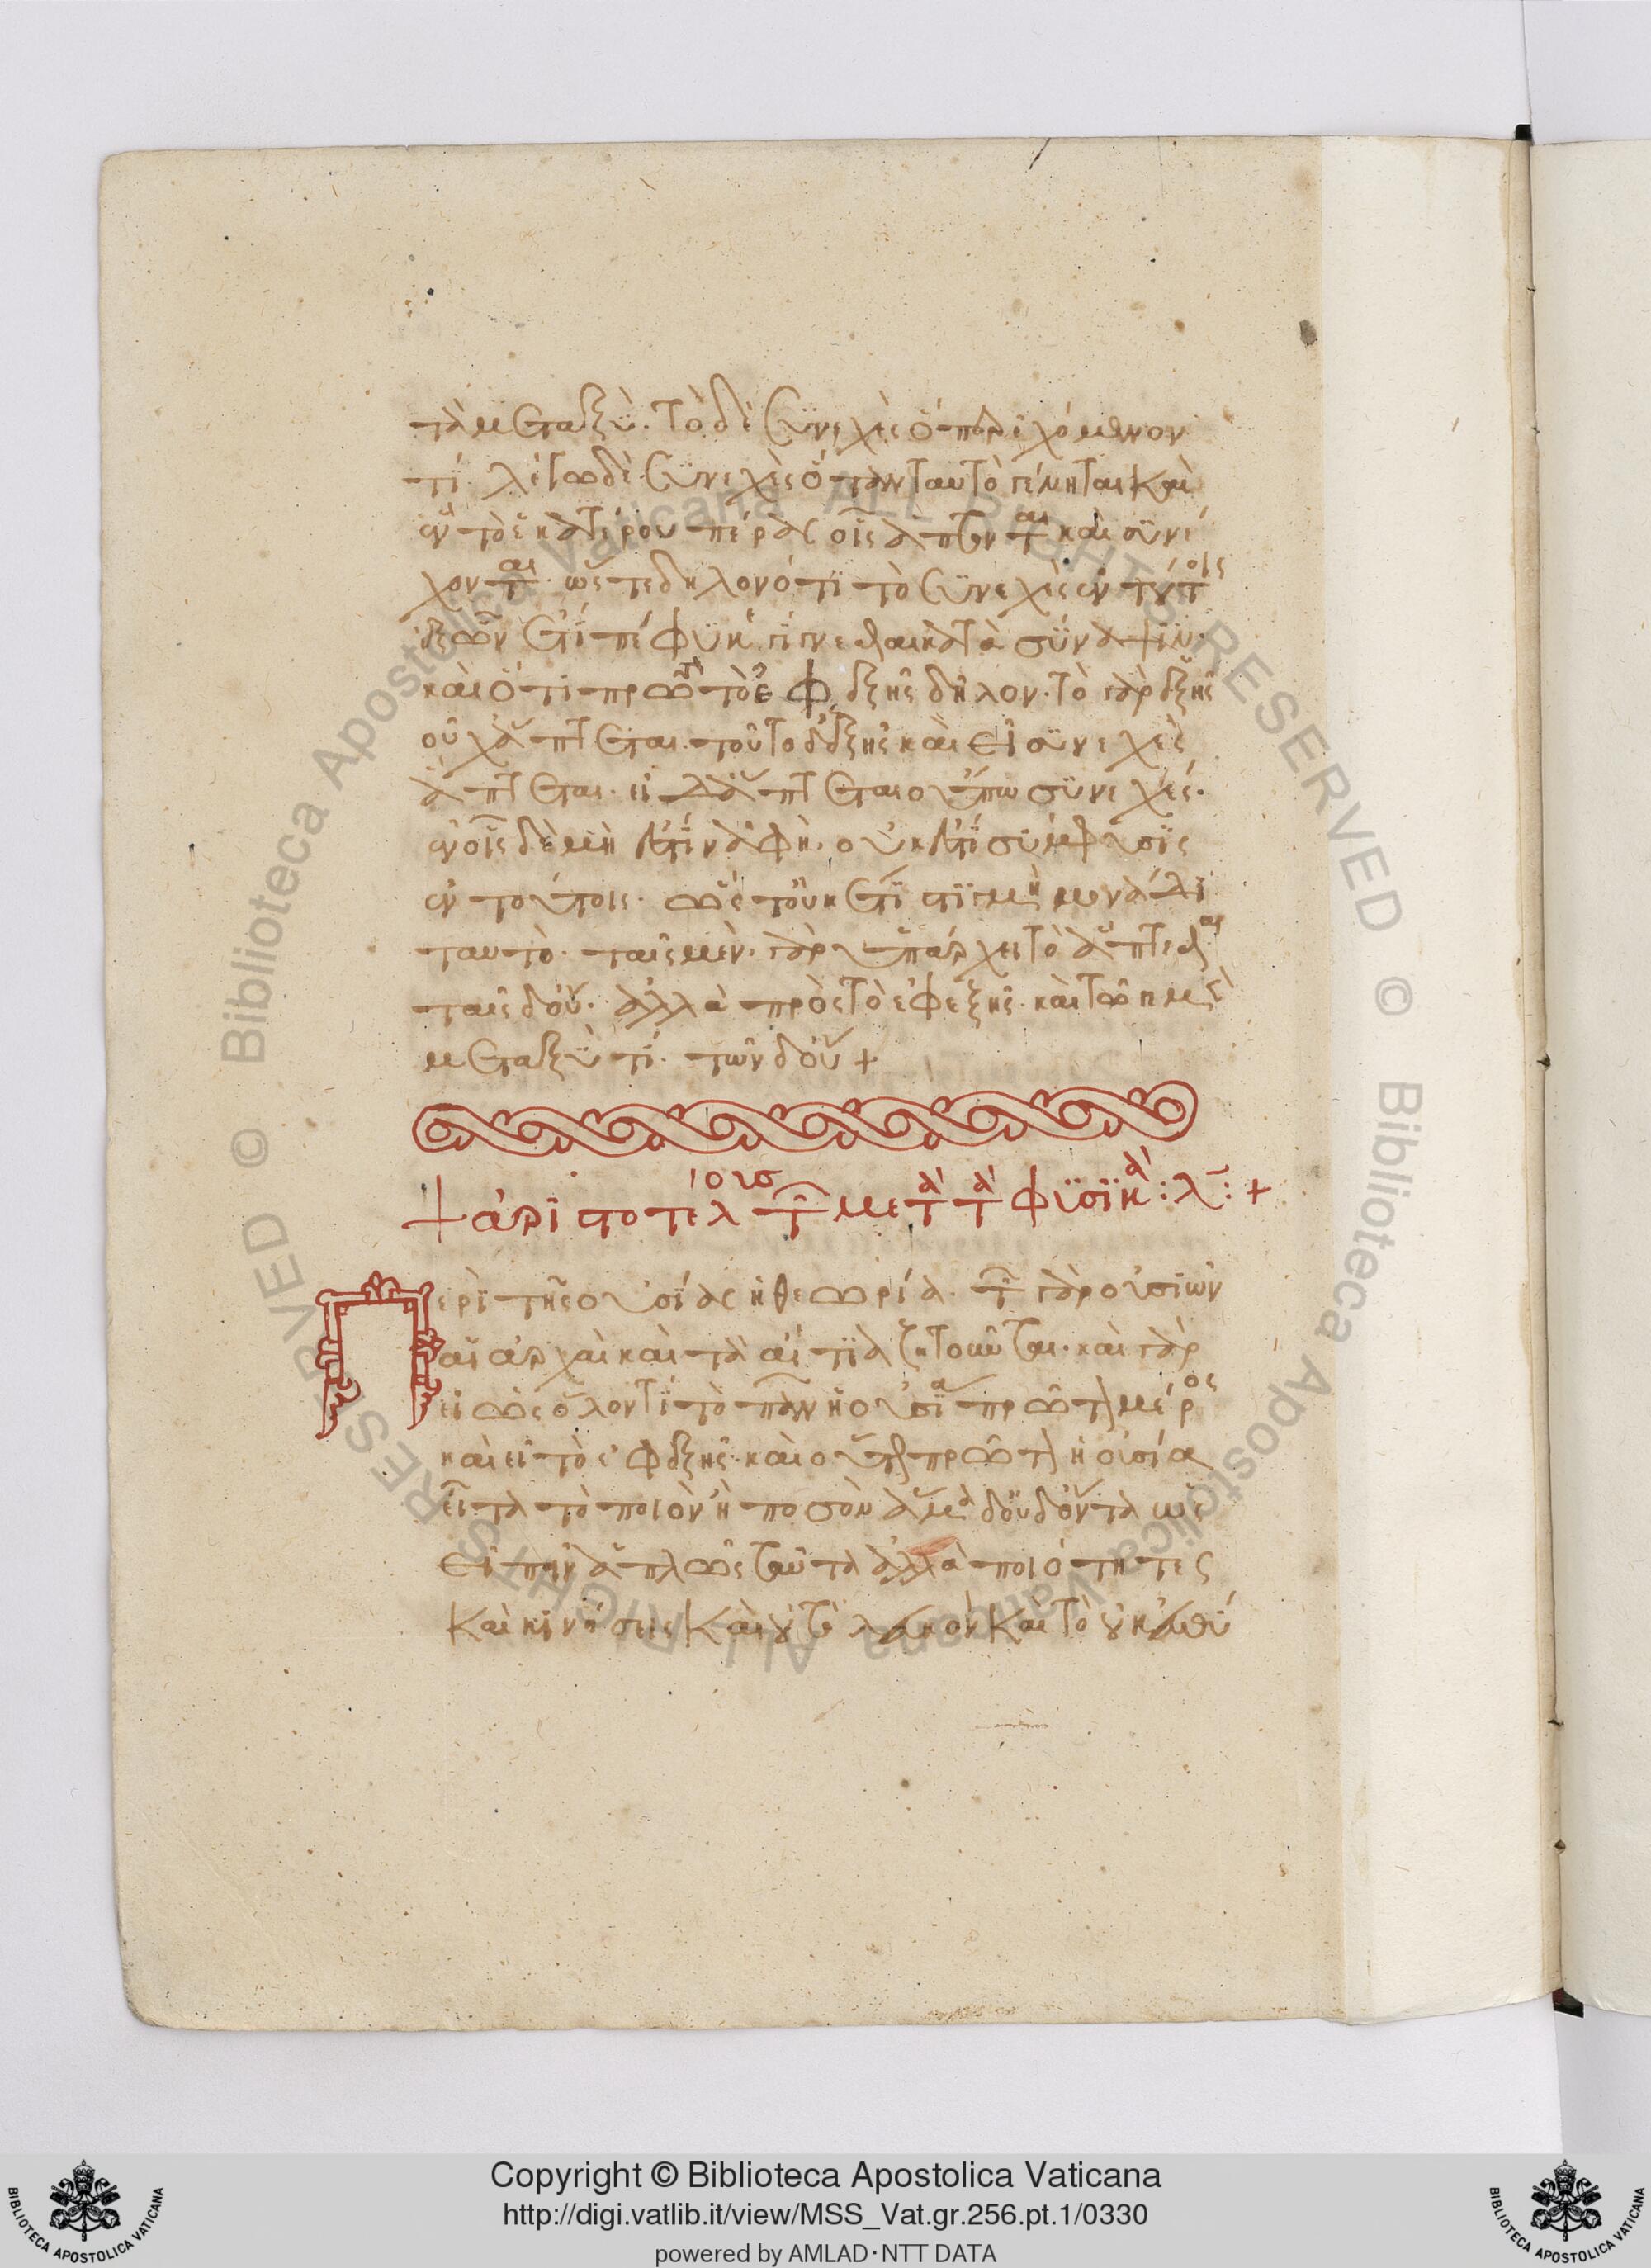 τὰ μεταξὺ. τὸ δὲ συνεχὲς ὅπερ ἐχόμενον
τί. λέγω δὲ συνεχὲς ὅταν ταυτὸ γένηται καὶ
ἓν τὸ ἑκατέρου πέρας οἷς ἅπτονται καὶ συνέ
χονται. ὥστε δηλονότι τὸ συνεχὲς ἐν τούτοις
ἐξ ὧν ἕν τι πέφυκε γίγνεσθαι κατὰ σύναψιν.
καὶ ὅτι πρῶτον τὸ ἐφεξῆς δῆλον. τὸ γὰρ ἐφεξῆς
οὐχ ἅπτεται. τοῦτο δ' ἐφεξῆς καὶ εἰ συνεχὲς
ἅπτεται. εἰ δ' ἅπτεται οὔπω συνεχές.
ἐν οἷς δὲ μὴ ἔστιν ἁφὴ. οὐκ ἔστι σύμφυσις
ἐν τούτοις. ὥστ' οὐκ ἔστι στιγμὴ μονάδι
ταυτὸ. ταῖς μὲν. γὰρ ὑπάρχει τὸ ἅπτεσθαι
ταῖς δ' οὔ. ἀλλὰ πρὸς τὸ ἐφεξῆς. καὶ τῶν μὲν
μεταξὺ τί. τῶν δ' οὔ +
+ ἀριστοτέλους τῶν μετὰ τὰ φυσικὰ : λ : +
Περὶ τῆς οὐσίας ἡ θεωρία. τῶν γὰρ οὐσιῶν
αἱ ἀρχαὶ καὶ τὰ αἴτια ζητοῦνται. καὶ γὰρ
εἰ ὡς ὅλον τι τὸ πᾶν ἡ οὐσία πρῶτον μέρος
καὶ εἰ τὸ ἐφεξῆς. καὶ οὕτως πρῶτον ἡ οὐσία
εἶτα τὸ ποιὸν ἢ ποσὸν ἅμα δ' οὐδ' ὄντα ὡς
εἰπεῖν ἁπλῶς ταῦτα ἀλλὰ ποιότητες
καὶ κινήσεις καὶ οὐ τὸ λευκὸν καὶ τὸ οὐκ εὐθύ
Copyright © Biblioteca Apostolica Vaticana
http://digi.vatlib.it/view/MSS_Vat.gr.256.pt.1/0330
powered by AMLAD·NTT DATA